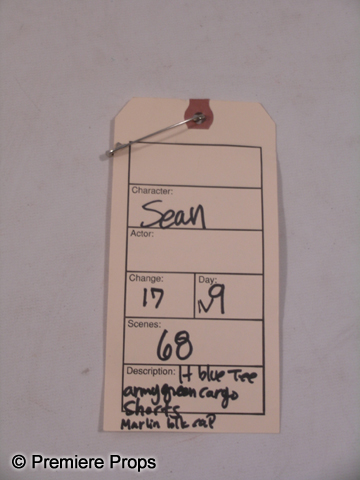 Character:
Sean
Actor:
Change: Day:
17 N9
Scenes:
68
Description: lt blue Tee
army green cargo
Shorts
Marlin blk cap
© Premiere Props